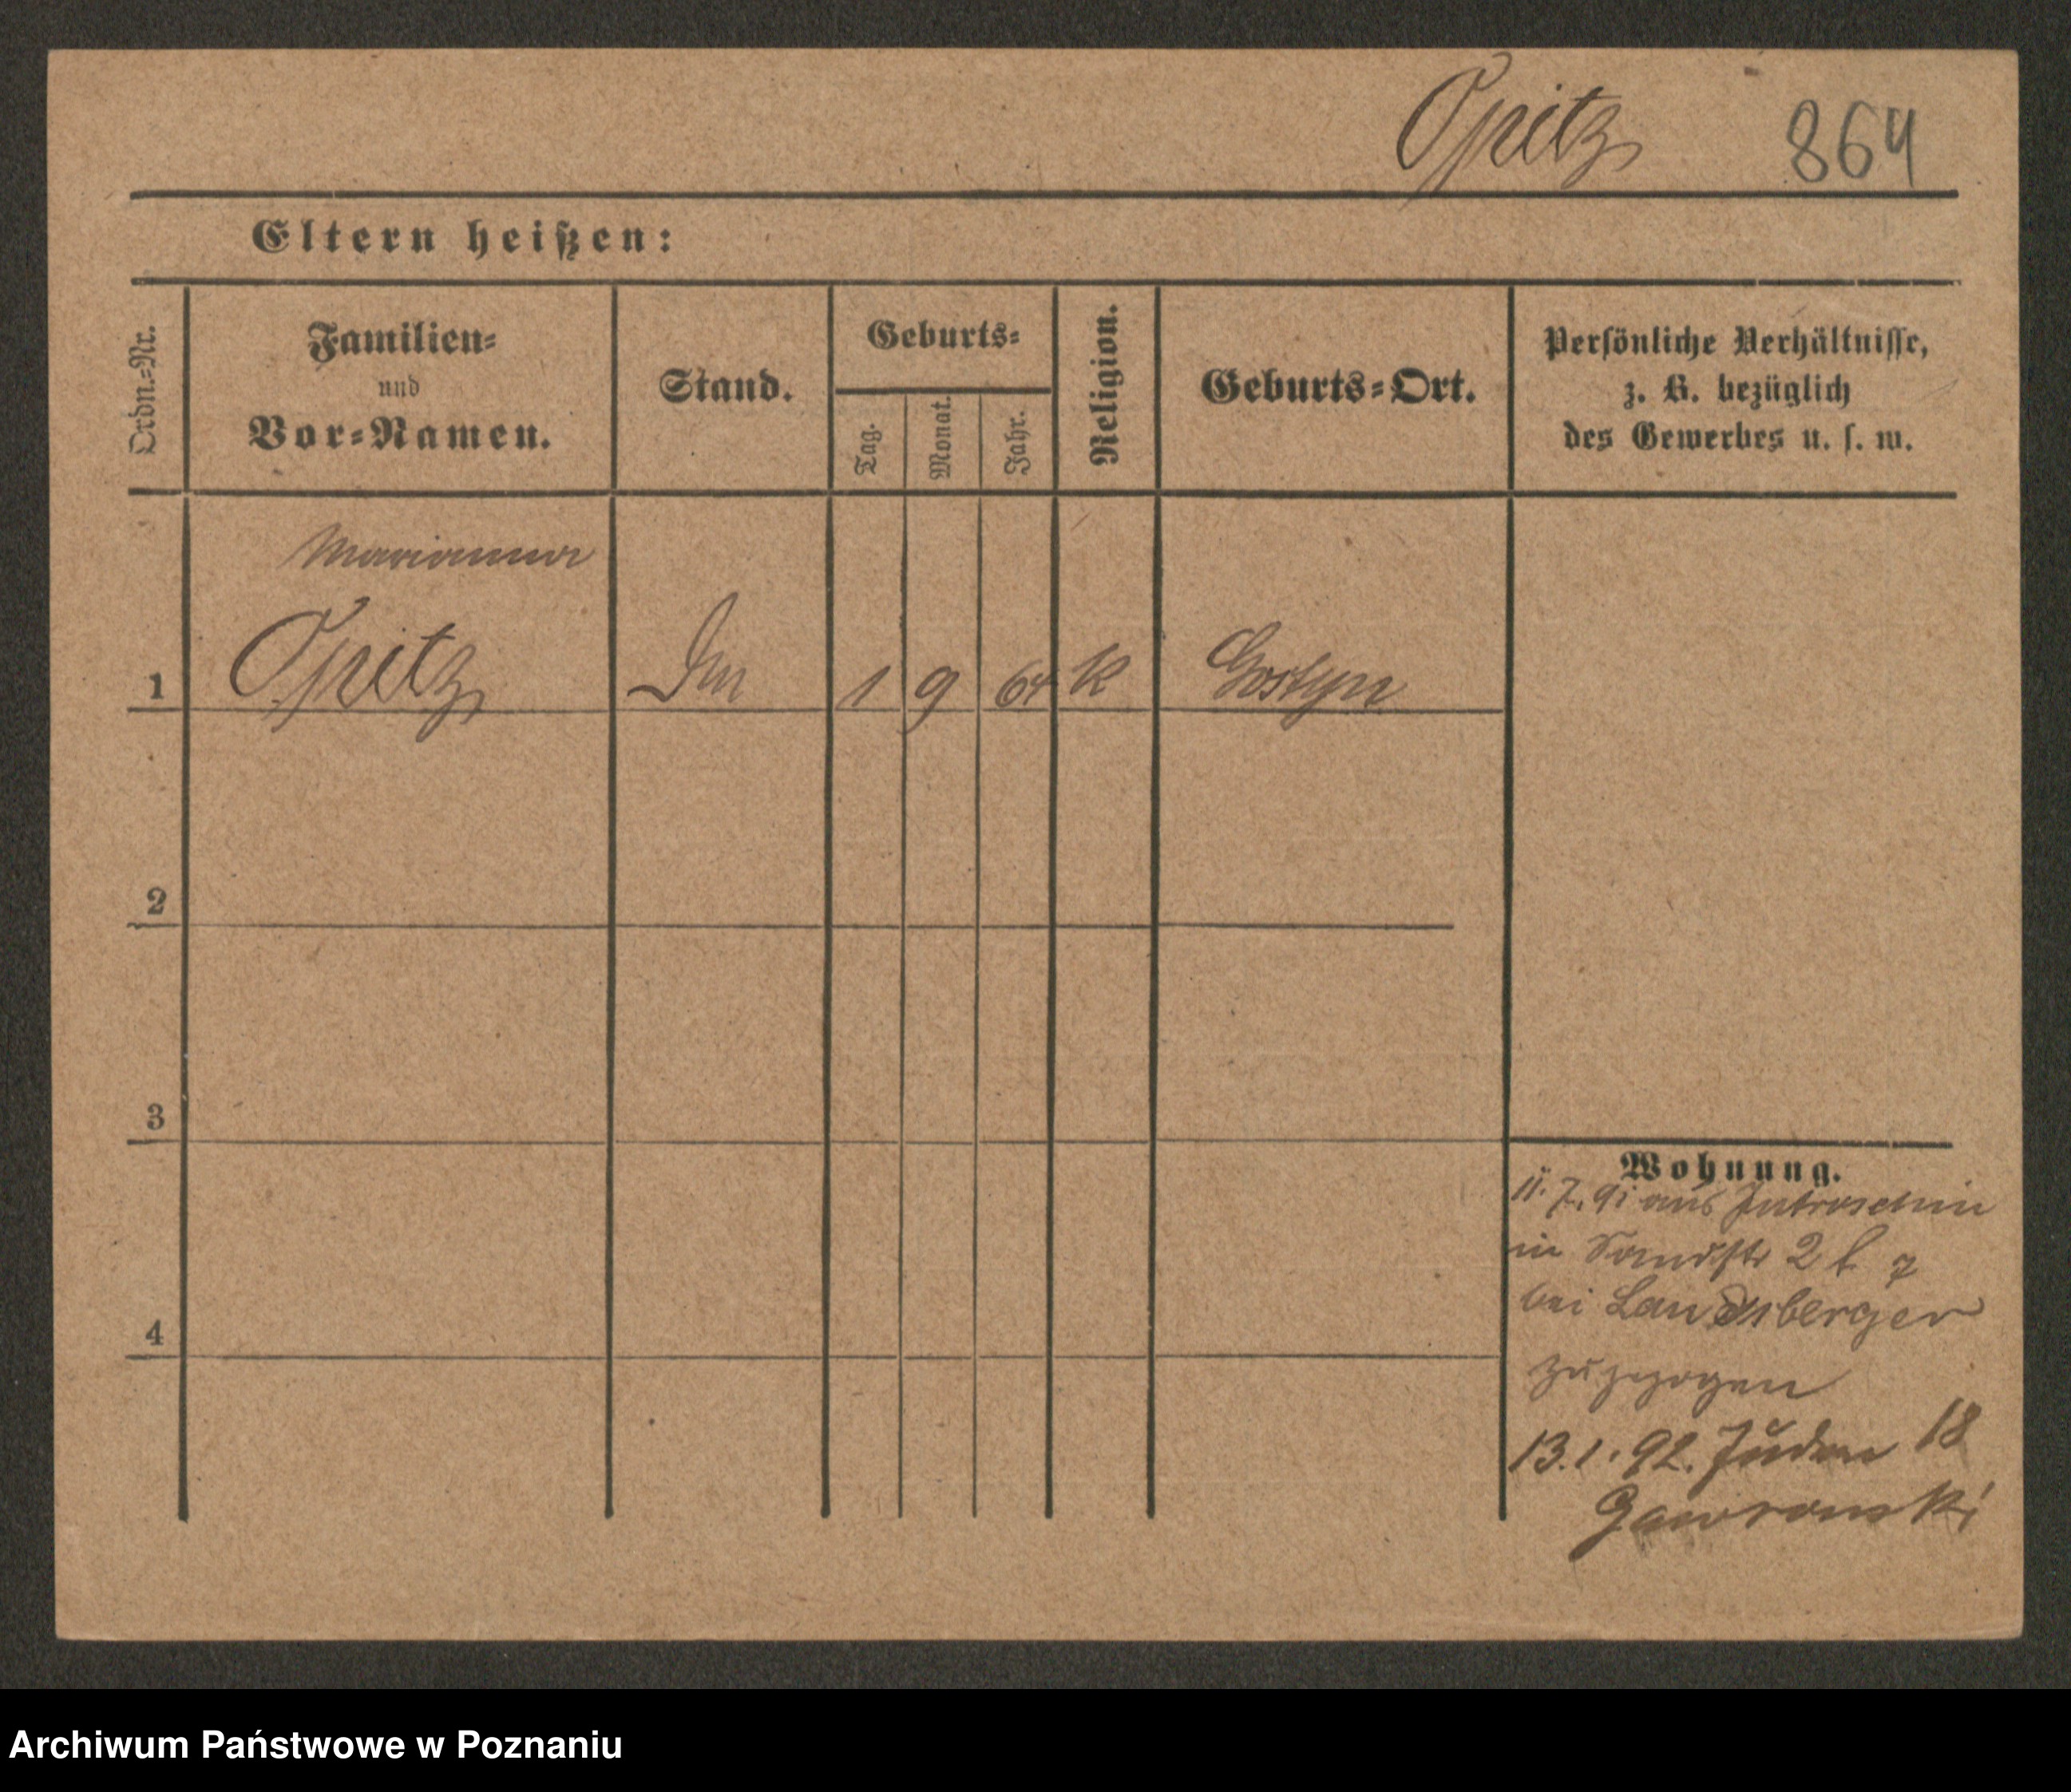 Opitz 864
Eltern heißen:
Ordn.=Nr.
Familien=
und
Vor=Namen.
Stand.
Geburts=
Tag.
Monat.
Jahr.
Religion.
Geburts=Ort.
Persönliche Verhältnisse,
z. B. bezüglich
des Gewerbes u. s. w.
Marianna
1 Opitz 1 9 64 K Gostyn
2
3
4
Wohnung.
11. 7. 91 aus Jutroschin
in Sandstr 2 b 7
bei Landsberger
zugezogen
13.1.92. Juden 18
Gawronski
Archiwum Państwowe w Poznaniu